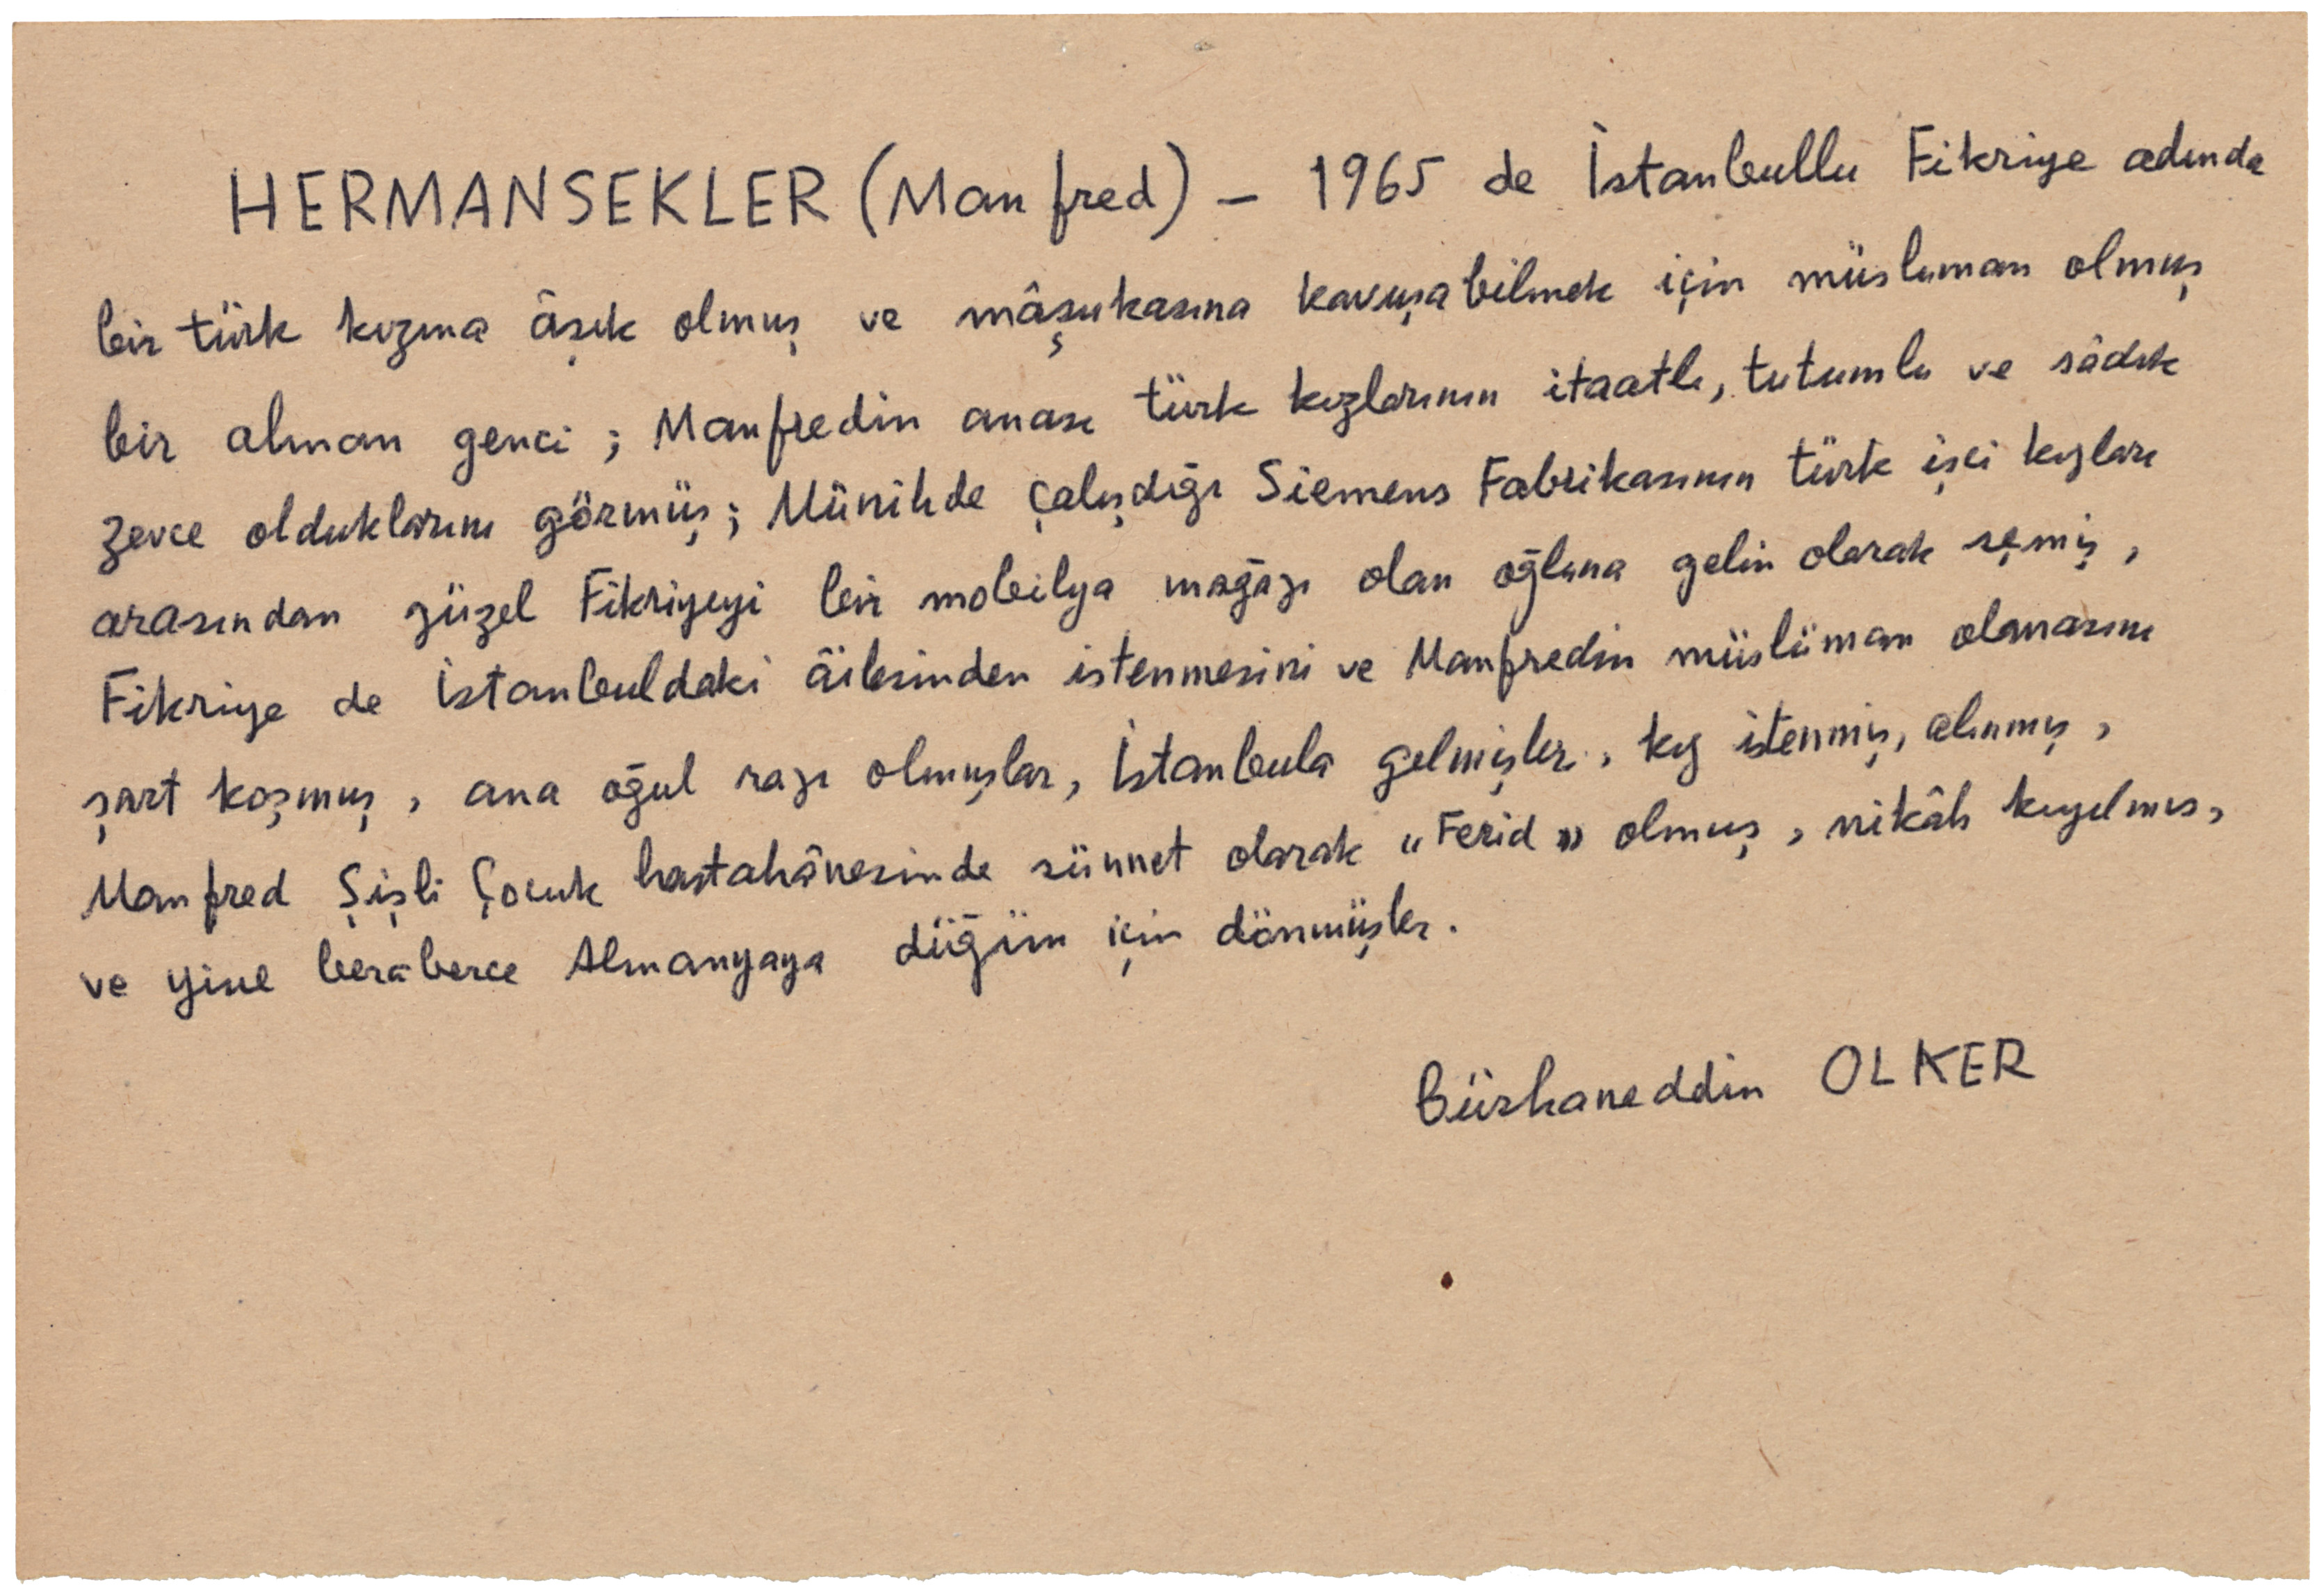 HERMANSEKLER (Manfred) - 1965 de İstanbullu Fikriye adında
bir türk kızına âşık olmuş ve mâşukasına kavuşabilmek için müsluman olmuş
bir alman genci ; Manfredin anası türk kızlarının itaatlı, tutumlu ve sâdık
zevce olduklarını görmüş ; Münihde çalışdığı Siemens Fabrikasının türk işci kızları
arasından güzel Fikriyeyi bir mobilya mağazı olan oğluna gelin olarak seçmiş,
Fikriye de İstanbuldaki âilesinden istenmesini ve Manfredin müslüman olmasını
şart koşmuş, ana oğul razı olmuşlar, İstanbula gelmişler, kız istenmiş, alınmış,
Manfred Şişli Çocuk hastahânesinde sünnet olarak "Ferid" olmuş, nikâh kıyılmıs,
ve yine berâberce Almanyaya düğün için dönmüşler.
Bürhaneddin OLKER